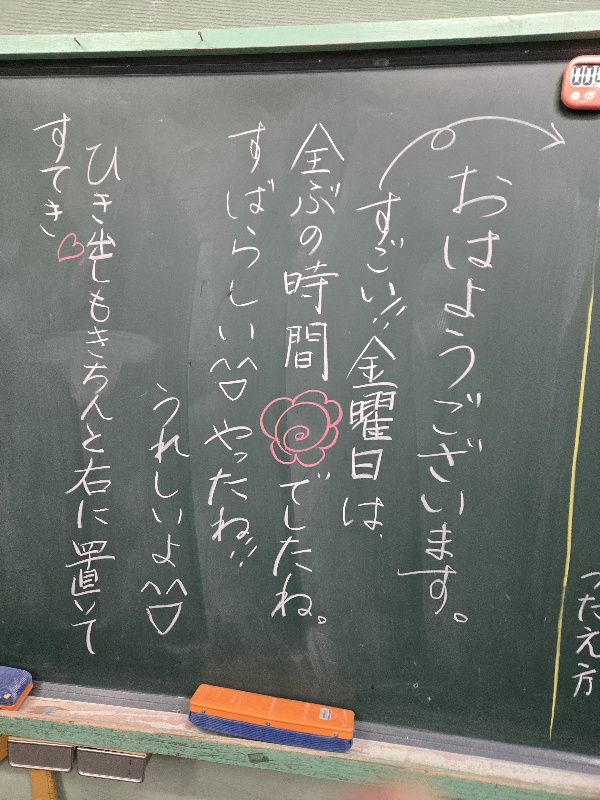 おはようございます。
すごい!!金曜日は、
全ぶの時間
でしたね。
すばらしい^^ やったね!!
うれしいよ^^
ひき出しもきちんと右に置いて
すてき♡
つたえ方